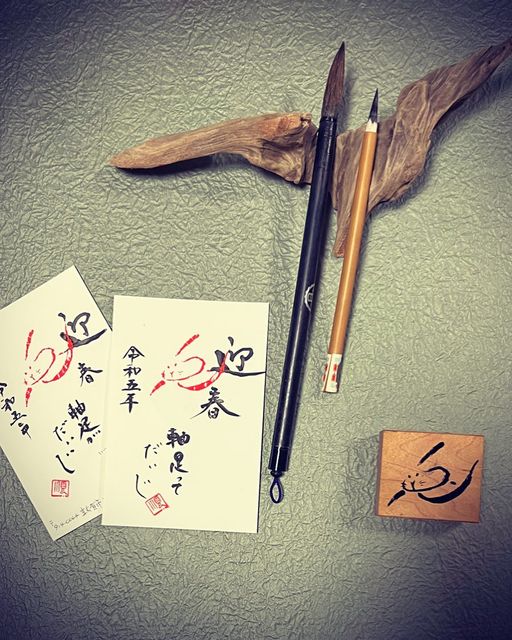 迎春
軸足が
だいじ
令和五年
迎春
軸足って
だいじ
令和五年